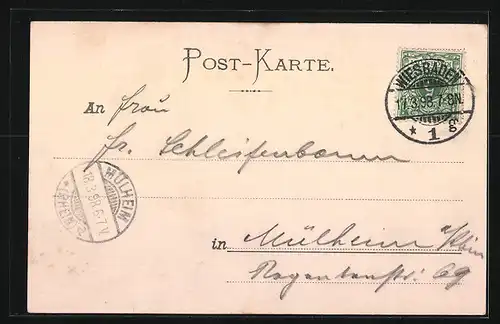 POST-KARTE.
WIESBADEN
3.98.7-8N.
* 1 g
An Frau
Fr. Schleifenbaum
MÜLHEIM
18.3.98.6-7V.
*(RHEIN)
in Mülheim a/Rhein
69